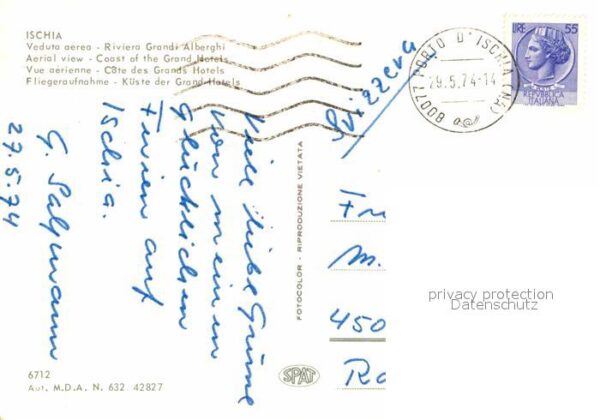 ISCHIA
Veduta aerea - Riviera Grandi Alberghi
Aerial view - Coast of the Grand Hotels
Vue aérienne - Côte des Grands Hotels
Fliegeraufnahme - Küste der Grand-Hotels
80077 PORTO D'ISCHIA (NA)
29.5.74-14
LIRE 55
REPVBBLICA
ITALIANA
Svizzera
Viele liebe Grüsse
von meinen
glücklichen
Ferien auf
Ischia.
G. Salzmann
27.5.74
FOTOCOLOR - RIPRODUZIONE VIETATA
Fr
M.
450
Ro
privacy protection
Datenschutz
SPAT
6712
Aut. M.D.A. N. 632 42827